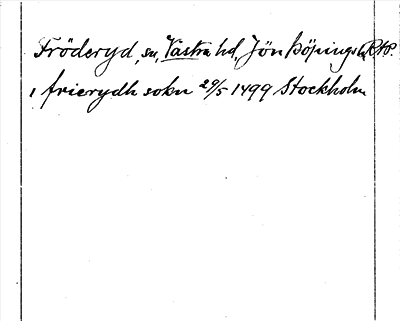 Fröderyd, sn, Västra hd, Jönköpings
i frierydh sokn 29/5 1499 Stockholm